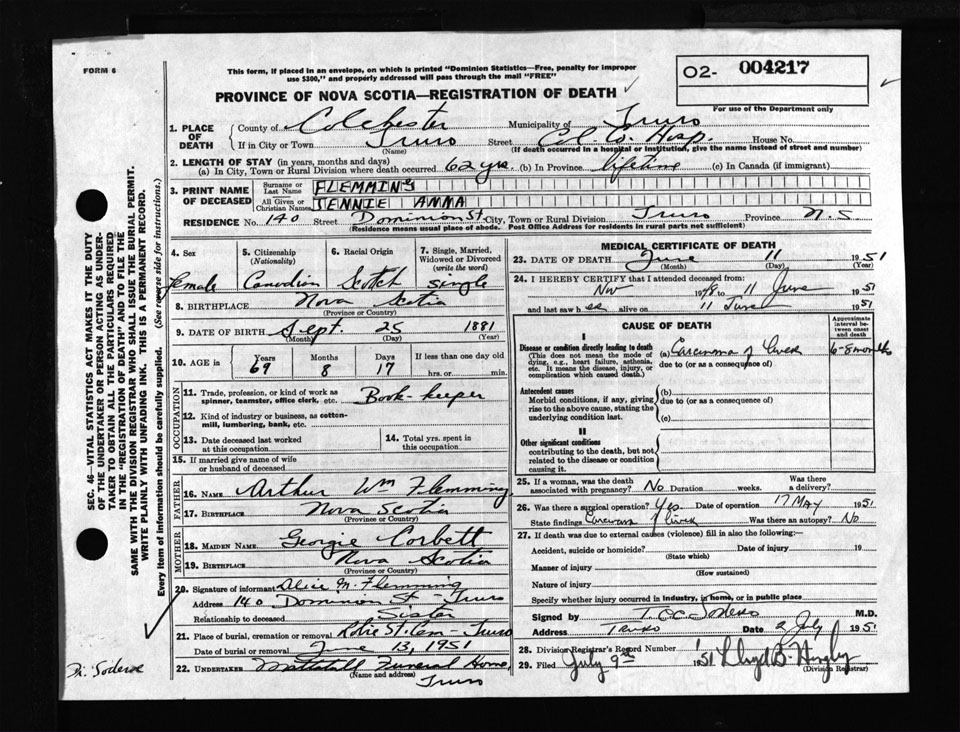 FORM 6
This form, if placed in an envelope, on which is printed "Dominion Statistics—Free, penalty for improper
use $300," and properly addressed will pass through the mail "FREE"
02- 004217
For use of the Department only
PROVINCE OF NOVA SCOTIA—REGISTRATION OF DEATH
1. PLACE OF DEATH
County of Colchester Municipality of Truro
If in City or Town Truro Street Col. Co. Hosp. House No.
(Name) (If death occurred in a hospital or institution, give the name instead of street and number)
2. LENGTH OF STAY (in years, months and days)
(a) In City, Town or Rural Division where death occurred 62 yrs. (b) In Province lifetime (c) In Canada (if immigrant)
3. PRINT NAME OF DECEASED
Surname or Last Name FLEMMING
All Given or Christian Names JENNIE ANNA
RESIDENCE No. 140 Street Dominion St. City, Town or Rural Division Truro Province N.S.
(Residence means usual place of abode. Post Office Address for residents in rural parts not sufficient)
4. Sex
Female
5. Citizenship
(Nationality)
Canadian
6. Racial Origin
Scotch
7. Single, Married, Widowed or Divorced
(write the word)
single
8. BIRTHPLACE Nova Scotia
(Province or Country)
9. DATE OF BIRTH Sept. 25 1881
(Month) (Day)
10. AGE in Years Months Days If less than one day old
69 8 17 hrs. or min.
OCCUPATION
11. Trade, profession, or kind of work as
spinner, teamster, office clerk, etc. Book-keeper
12. Kind of industry or business, as cotton-
mill, lumbering, bank, etc.
13. Date deceased last worked
at this occupation
14. Total yrs. spent in
this occupation
15. If married give name of wife
or husband of deceased
FATHER
16. NAME Arthur Wm Flemming
17. BIRTHPLACE Nova Scotia
(Province or Country)
MOTHER
18. MAIDEN NAME Georgie Corbett
19. BIRTHPLACE Nova Scotia
(Province or Country)
20. Signature of informant Alice M. Flemming
Address 140 Dominion St - Truro
Relationship to deceased Sister
21. Place of burial, cremation or removal Robie St. Cem Truro
Date of burial or removal June 13, 1951
22. UNDERTAKER Funeral Home,
(Name and address)
Truro
MEDICAL CERTIFICATE OF DEATH
23. DATE OF DEATH June 11 1951
(Month) (Day) (Year)
24. I HEREBY CERTIFY that I attended deceased from:
Nov 1948 to 11 June 1951
and last saw h er alive on 11 June 1951
CAUSE OF DEATH
Approximate interval between onset and death
I
Disease or condition directly leading to death
(This does not mean the mode of
dying, e.g., heart failure, asthenia,
etc. It means the disease, injury, or
complication which caused death.)
(a) Carcinoma of liver 6-8 months
due to (or as a consequence of)
Antecedent causes
Morbid conditions, if any, giving
rise to the above cause, stating the
underlying condition last.
(b)
due to (or as a consequence of)
(c)
II
Other significant conditions
contributing to the death, but not
related to the disease or condition
causing it.
25. If a woman, was the death
associated with pregnancy? No Duration weeks. Was there
a delivery?
26. Was there a surgical operation? Yes Date of operation 17 MAY 1951
State findings Carcinoma of liver Was there an autopsy? No
27. If death was due to external causes (violence) fill in also the following:
Accident, suicide or homicide? Date of injury 19
(State which)
Manner of injury
(How sustained)
Nature of injury
Specify whether injury occurred in industry, in home, or in public place
Signed by T.O.C. Sodero M.D.
Address Truro Date 2 July 1951
28. Division Registrar's Record Number
29. Filed July 9th 1951 Lloyd B.
(Division Registrar)
SEC. 46—VITAL STATISTICS ACT MAKES IT THE DUTY
OF THE UNDERTAKER OR PERSON ACTING AS UNDER-
TAKER TO OBTAIN ALL THE PARTICULARS REQUIRED
IN THE "REGISTRATION OF DEATH" AND TO FILE THE
SAME WITH THE DIVISION REGISTRAR WHO SHALL ISSUE THE BURIAL PERMIT.
WRITE PLAINLY WITH UNFADING INK. THIS IS A PERMANENT RECORD.
Every item of information should be carefully supplied. (See reverse side for instructions.)
Dr. Sodero